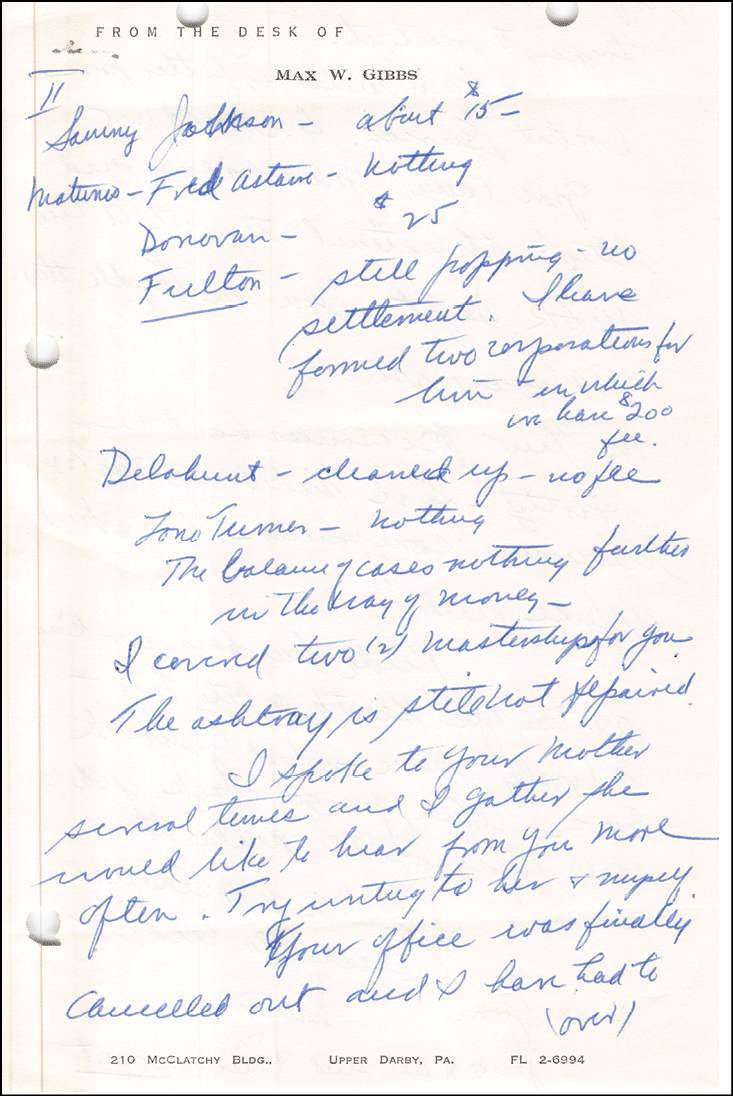 FROM THE DESK OF
MAX W. GIBBS
II
Sammy Jackson - about $15 -
- Fred Astaire - Nothing
Donovan - $25
Fulton - still popping - no
settlement. I have
formed two corporations for
him - in which
we have $200
fee.
Delahunt - cleaned up - no fee
Turner - nothing
The balance of cases nothing further
in the way of money -
I covered two (2) masterships for you
The ashtray is still not repaired.
I spoke to your mother
several times and I gather she
would like to hear from you more
often. Try writing to her & myself
Your office was finally
cancelled out and I have had to
(over)
210 MCCLATCHY BLDG., UPPER DARBY, PA. FL 2-6994